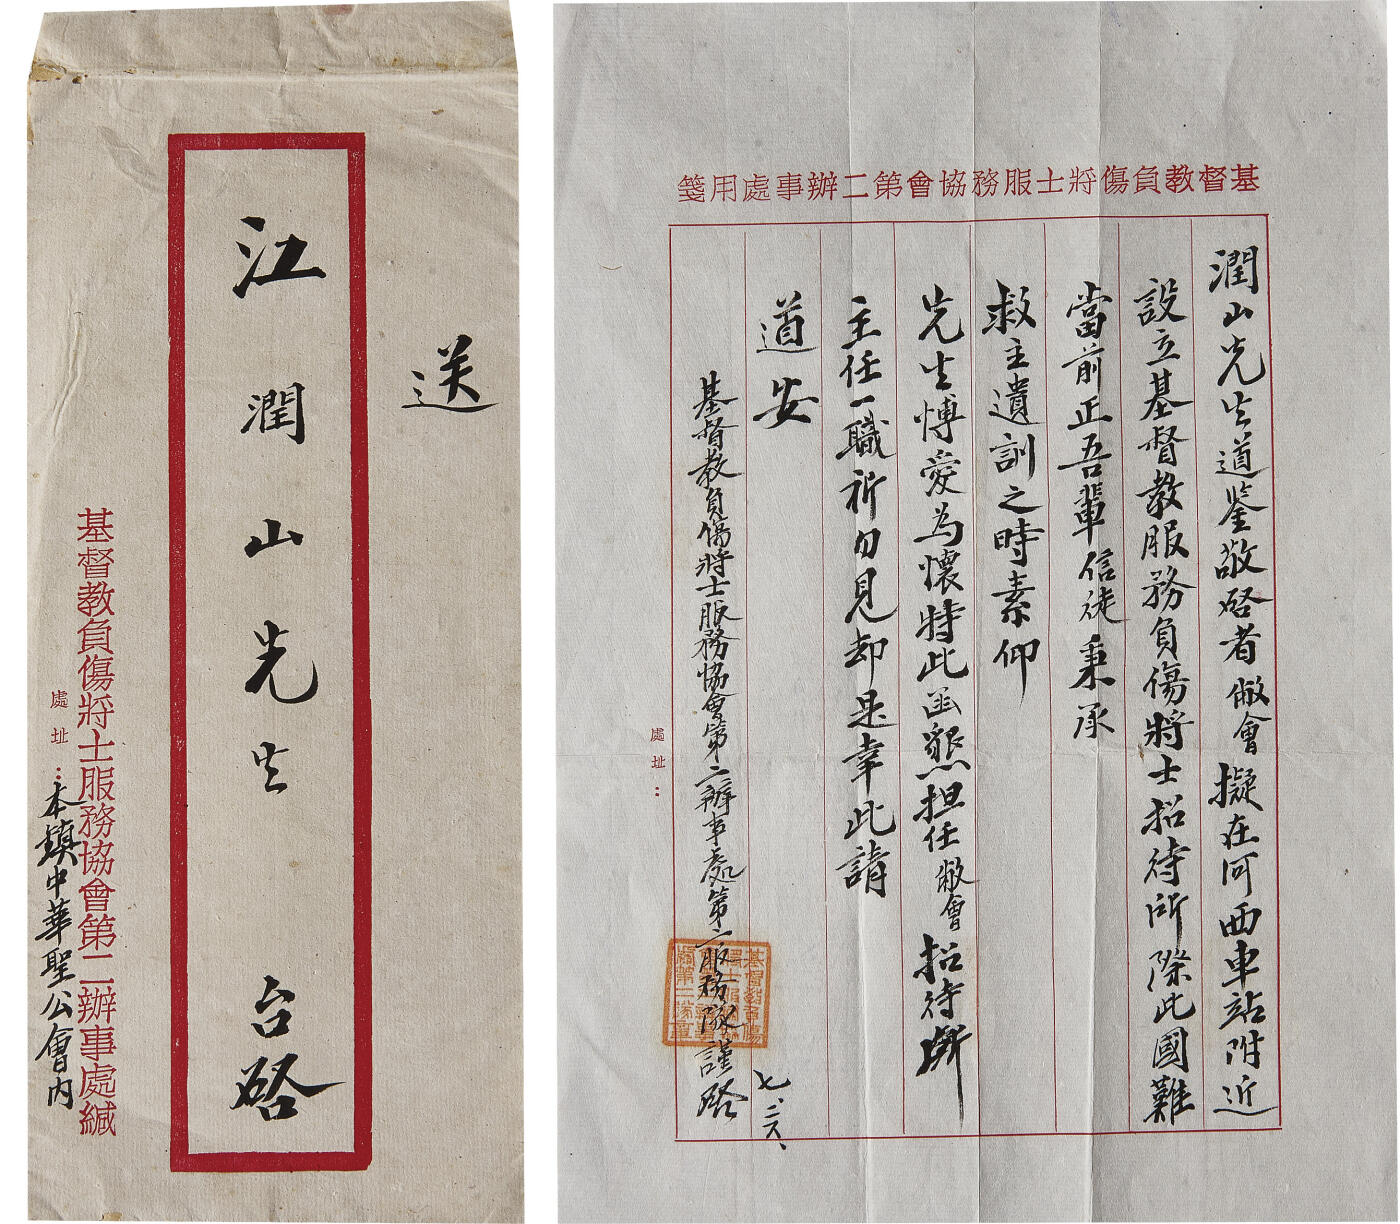 送
江潤山先生 台啓
基督教負傷將士服務協會第二辦事處緘
處址：本鎮中華聖公會內
基督教負傷將士服務協會第二辦事處用箋
潤山先生道鑒敬啓者敝會擬在河西車站附近
設立基督教服務負傷將士招待所際此國難
當前正吾輩信徒秉承
救主遺訓之時素仰
先生博愛為懷特此函懇担任敝會招待所
主任一職祈勿見却是幸此請
道安
基督教負傷將士服務協會第二辦事處第二服務隊謹啓
七、二六、
處址：